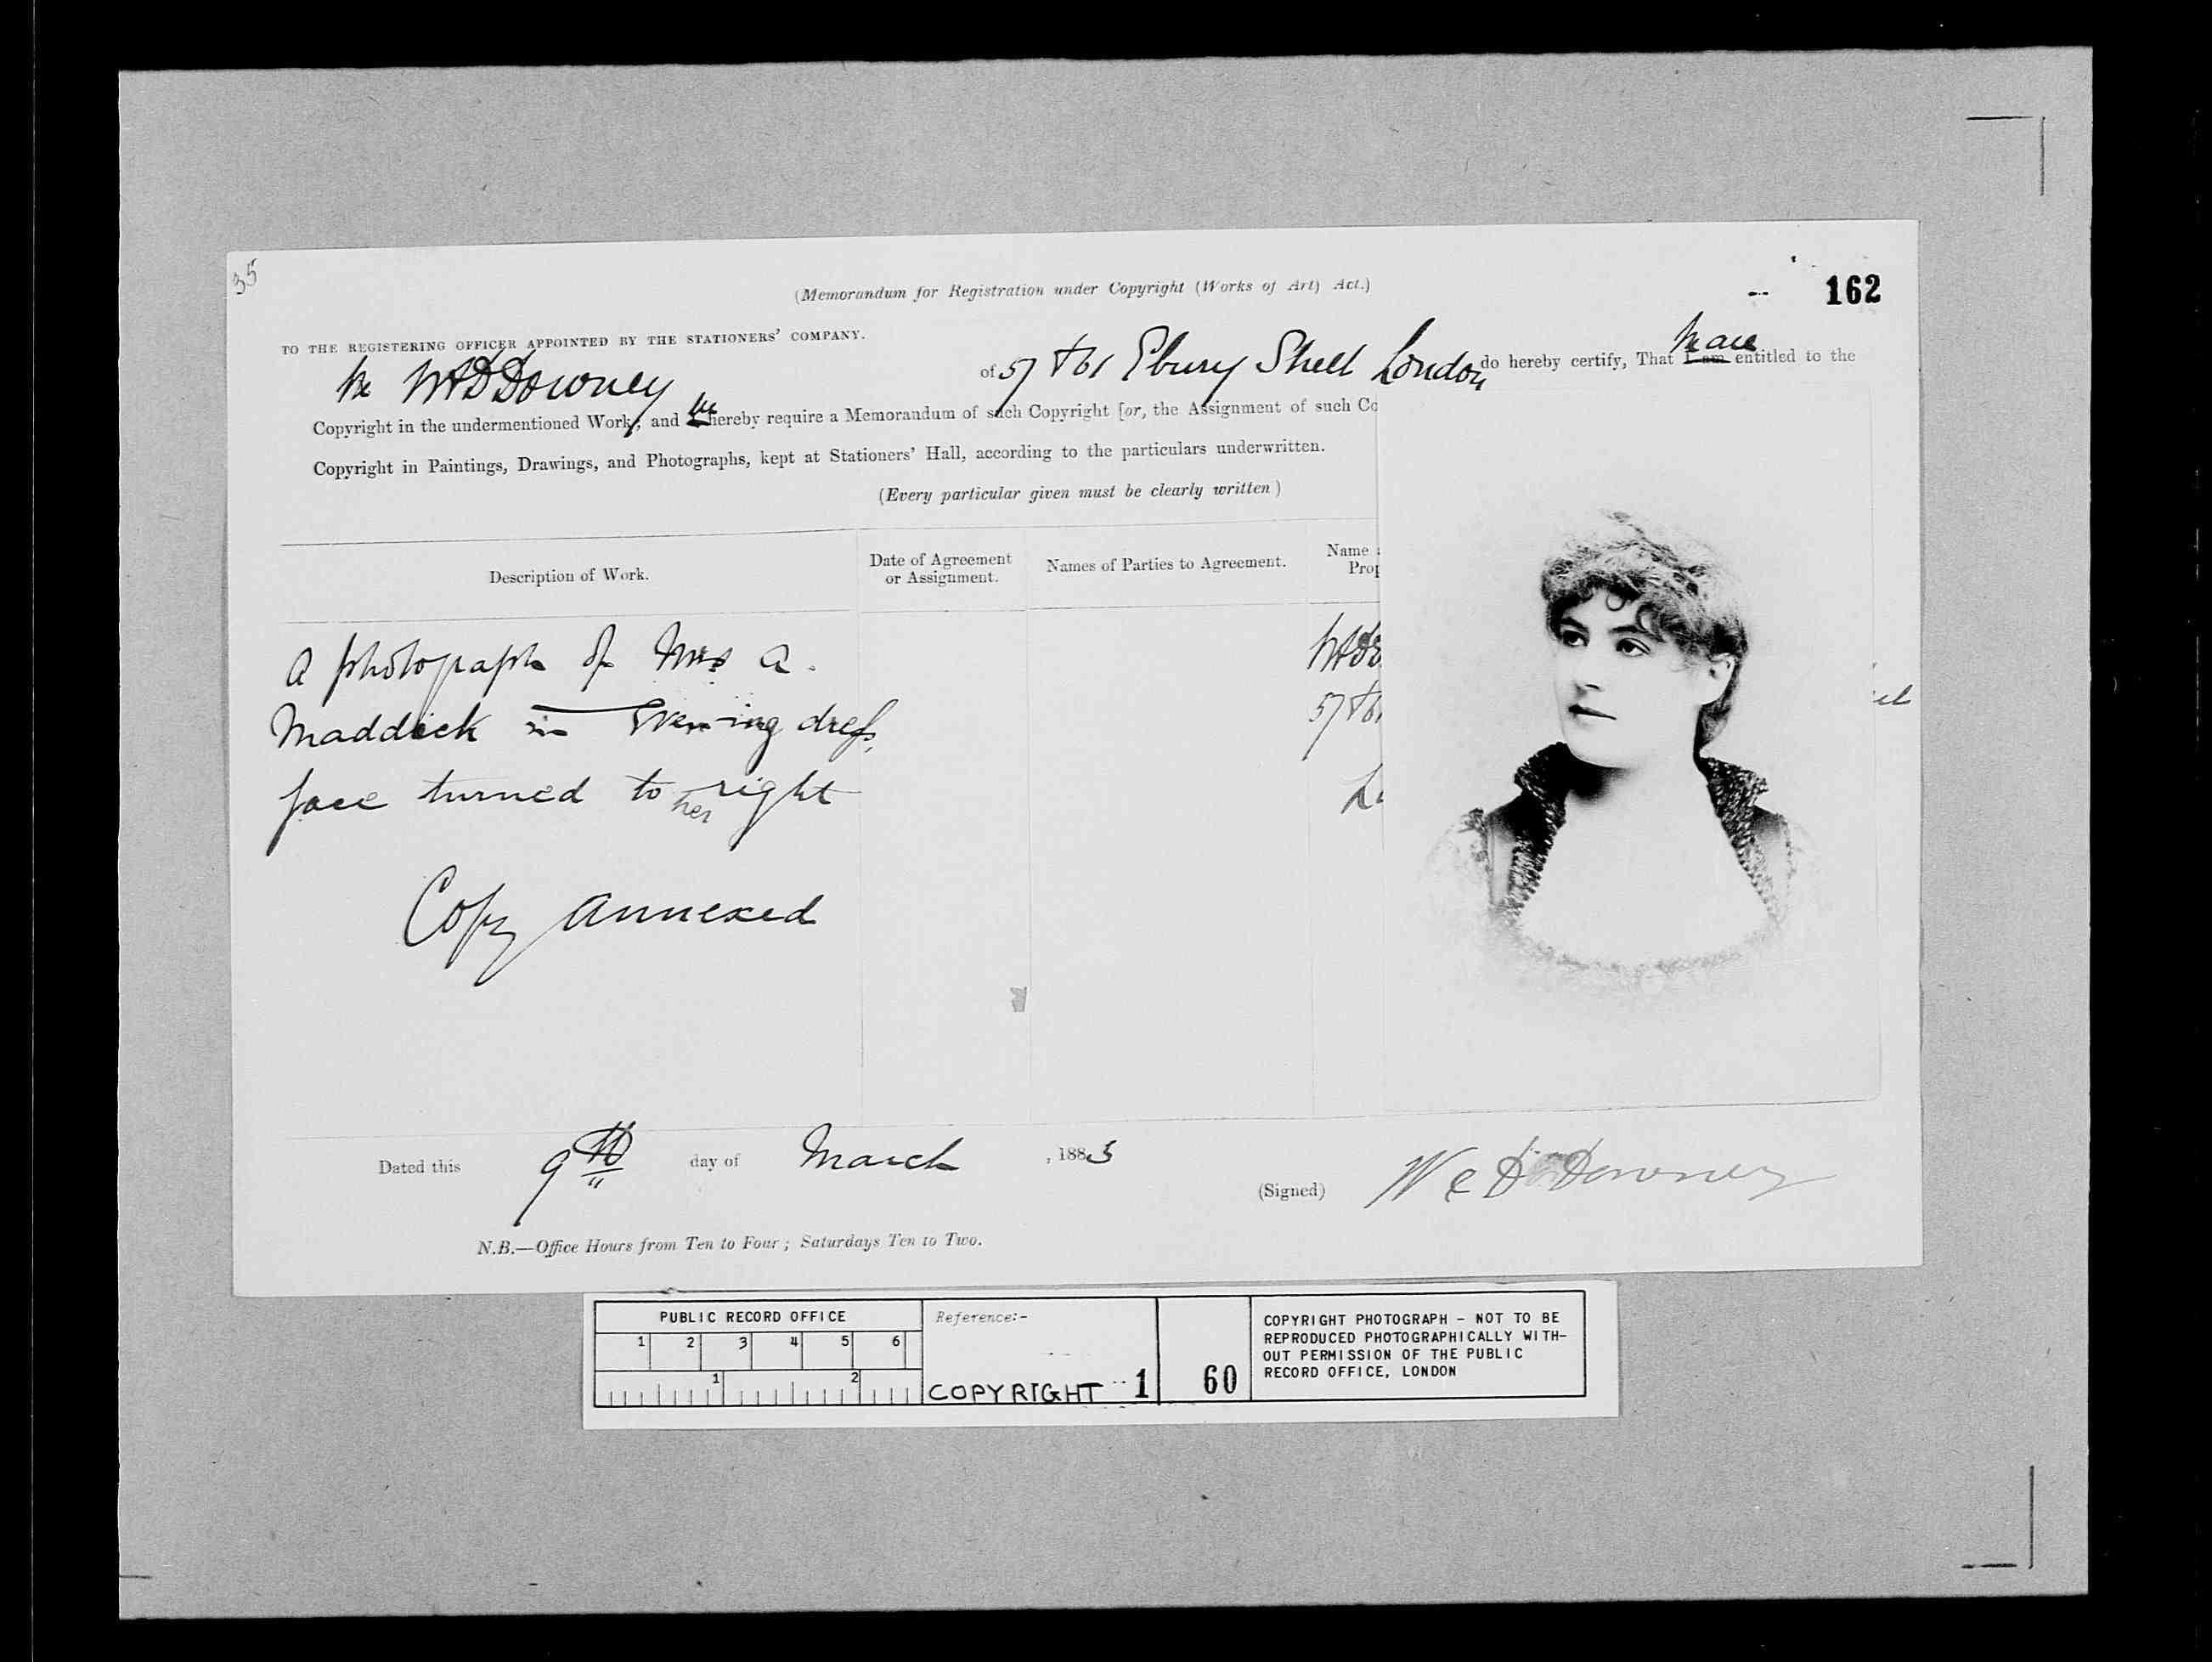 35
(Memorandum for Registration under Copyright (Works of Art) Act.)
162
TO THE REGISTERING OFFICER APPOINTED BY THE STATIONERS' COMPANY.
We W & D Downey of 57 & 61 Ebury Street London do hereby certify, That I am We are entitled to the
Copyright in the undermentioned Work, and I We hereby require a Memorandum of such Copyright [or, the Assignment of such Co
Copyright in Paintings, Drawings, and Photographs, kept at Stationers' Hall, according to the particulars underwritten.
(Every particular given must be clearly written)
Description of Work.
Date of Agreement
or Assignment.
Names of Parties to Agreement.
Name
Prop
A photograph of Mrs A.
Maddick in Evening dress,
face turned to her right
Copy annexed
W & D
57 & 61
Lo
Dated this 9th day of March, 1883
(Signed) W & D Downey
N.B.—Office Hours from Ten to Four; Saturdays Ten to Two.
PUBLIC RECORD OFFICE
1 2 3 4 5 6
1 2
Reference:-
COPYRIGHT 1
60
COPYRIGHT PHOTOGRAPH - NOT TO BE
REPRODUCED PHOTOGRAPHICALLY WITH-
OUT PERMISSION OF THE PUBLIC
RECORD OFFICE, LONDON